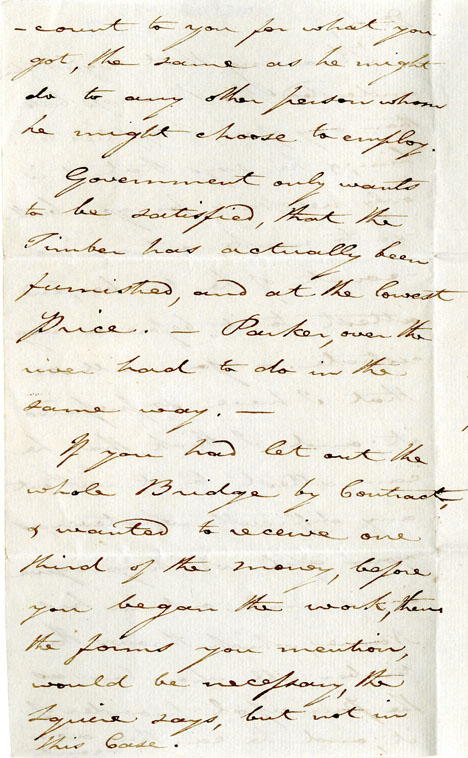 -count to you for what you
got, the same as he might
do to any other person whom
he might choose to employ.
Government only wants
to be satisfied, that the
Timber has actually been
furnished, and at the lowest
Price. — Parker, over the
river had to do in the
same way. —
If you had let out the
whole Bridge by Contract,
& wanted to receive one
third of the money, before
you began the work, then
the forms you mention,
would be necessary, the
Squire says, but not in
this Case.